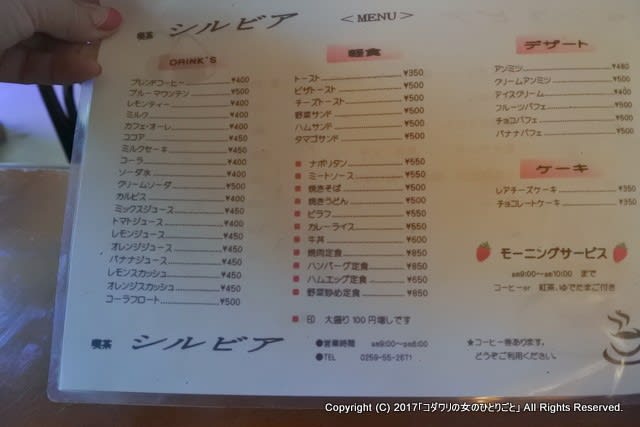 喫茶 シルビア <MENU>
DRINK'S
ブレンドコーヒー ¥400
ブルーマウンテン ¥500
レモンティー ¥400
ミルク ¥400
カフェ・オーレ ¥400
ココア ¥450
ミルクセーキ ¥450
コーラ ¥400
ソーダ水 ¥400
クリームソーダ ¥500
カルピス ¥400
ミックスジュース ¥450
トマトジュース ¥400
レモンジュース ¥450
オレンジジュース ¥450
バナナジュース ¥450
レモンスカッシュ ¥450
オレンジスカッシュ ¥450
コーラフロート ¥500
軽食
トースト ¥350
ピザトースト ¥500
チーズトースト ¥500
野菜サンド ¥500
ハムサンド ¥500
タマゴサンド ¥500
■ ナポリタン ¥550
■ ミートソース ¥550
■ 焼きそば ¥550
■ 焼きうどん ¥550
■ ピラフ ¥550
■ カレーライス ¥550
■ 牛丼 ¥600
■ 焼肉定食 ¥850
■ ハンバーグ定食 ¥850
■ ハムエッグ定食 ¥650
■ 野菜炒め定食 ¥850
■ 印 大盛り100円増しです
デザート
アンミツ ¥450
クリームアンミツ ¥500
アイスクリーム ¥400
フルーツパフェ ¥500
チョコパフェ ¥500
バナナパフェ ¥500
ケーキ
レアチーズケーキ ¥350
チョコレートケーキ ¥350
モーニングサービス
am9:00~am10:00 まで
コーヒーor 紅茶、ゆでたまご付き
喫茶 シルビア
●営業時間 am9:00~pm6:00
●TEL 0259-55-2671
★コーヒー券あります。
どうぞご利用ください。
Copyright (C) 2017「コダワリの女のひとりごと」 All Rights Reserved.